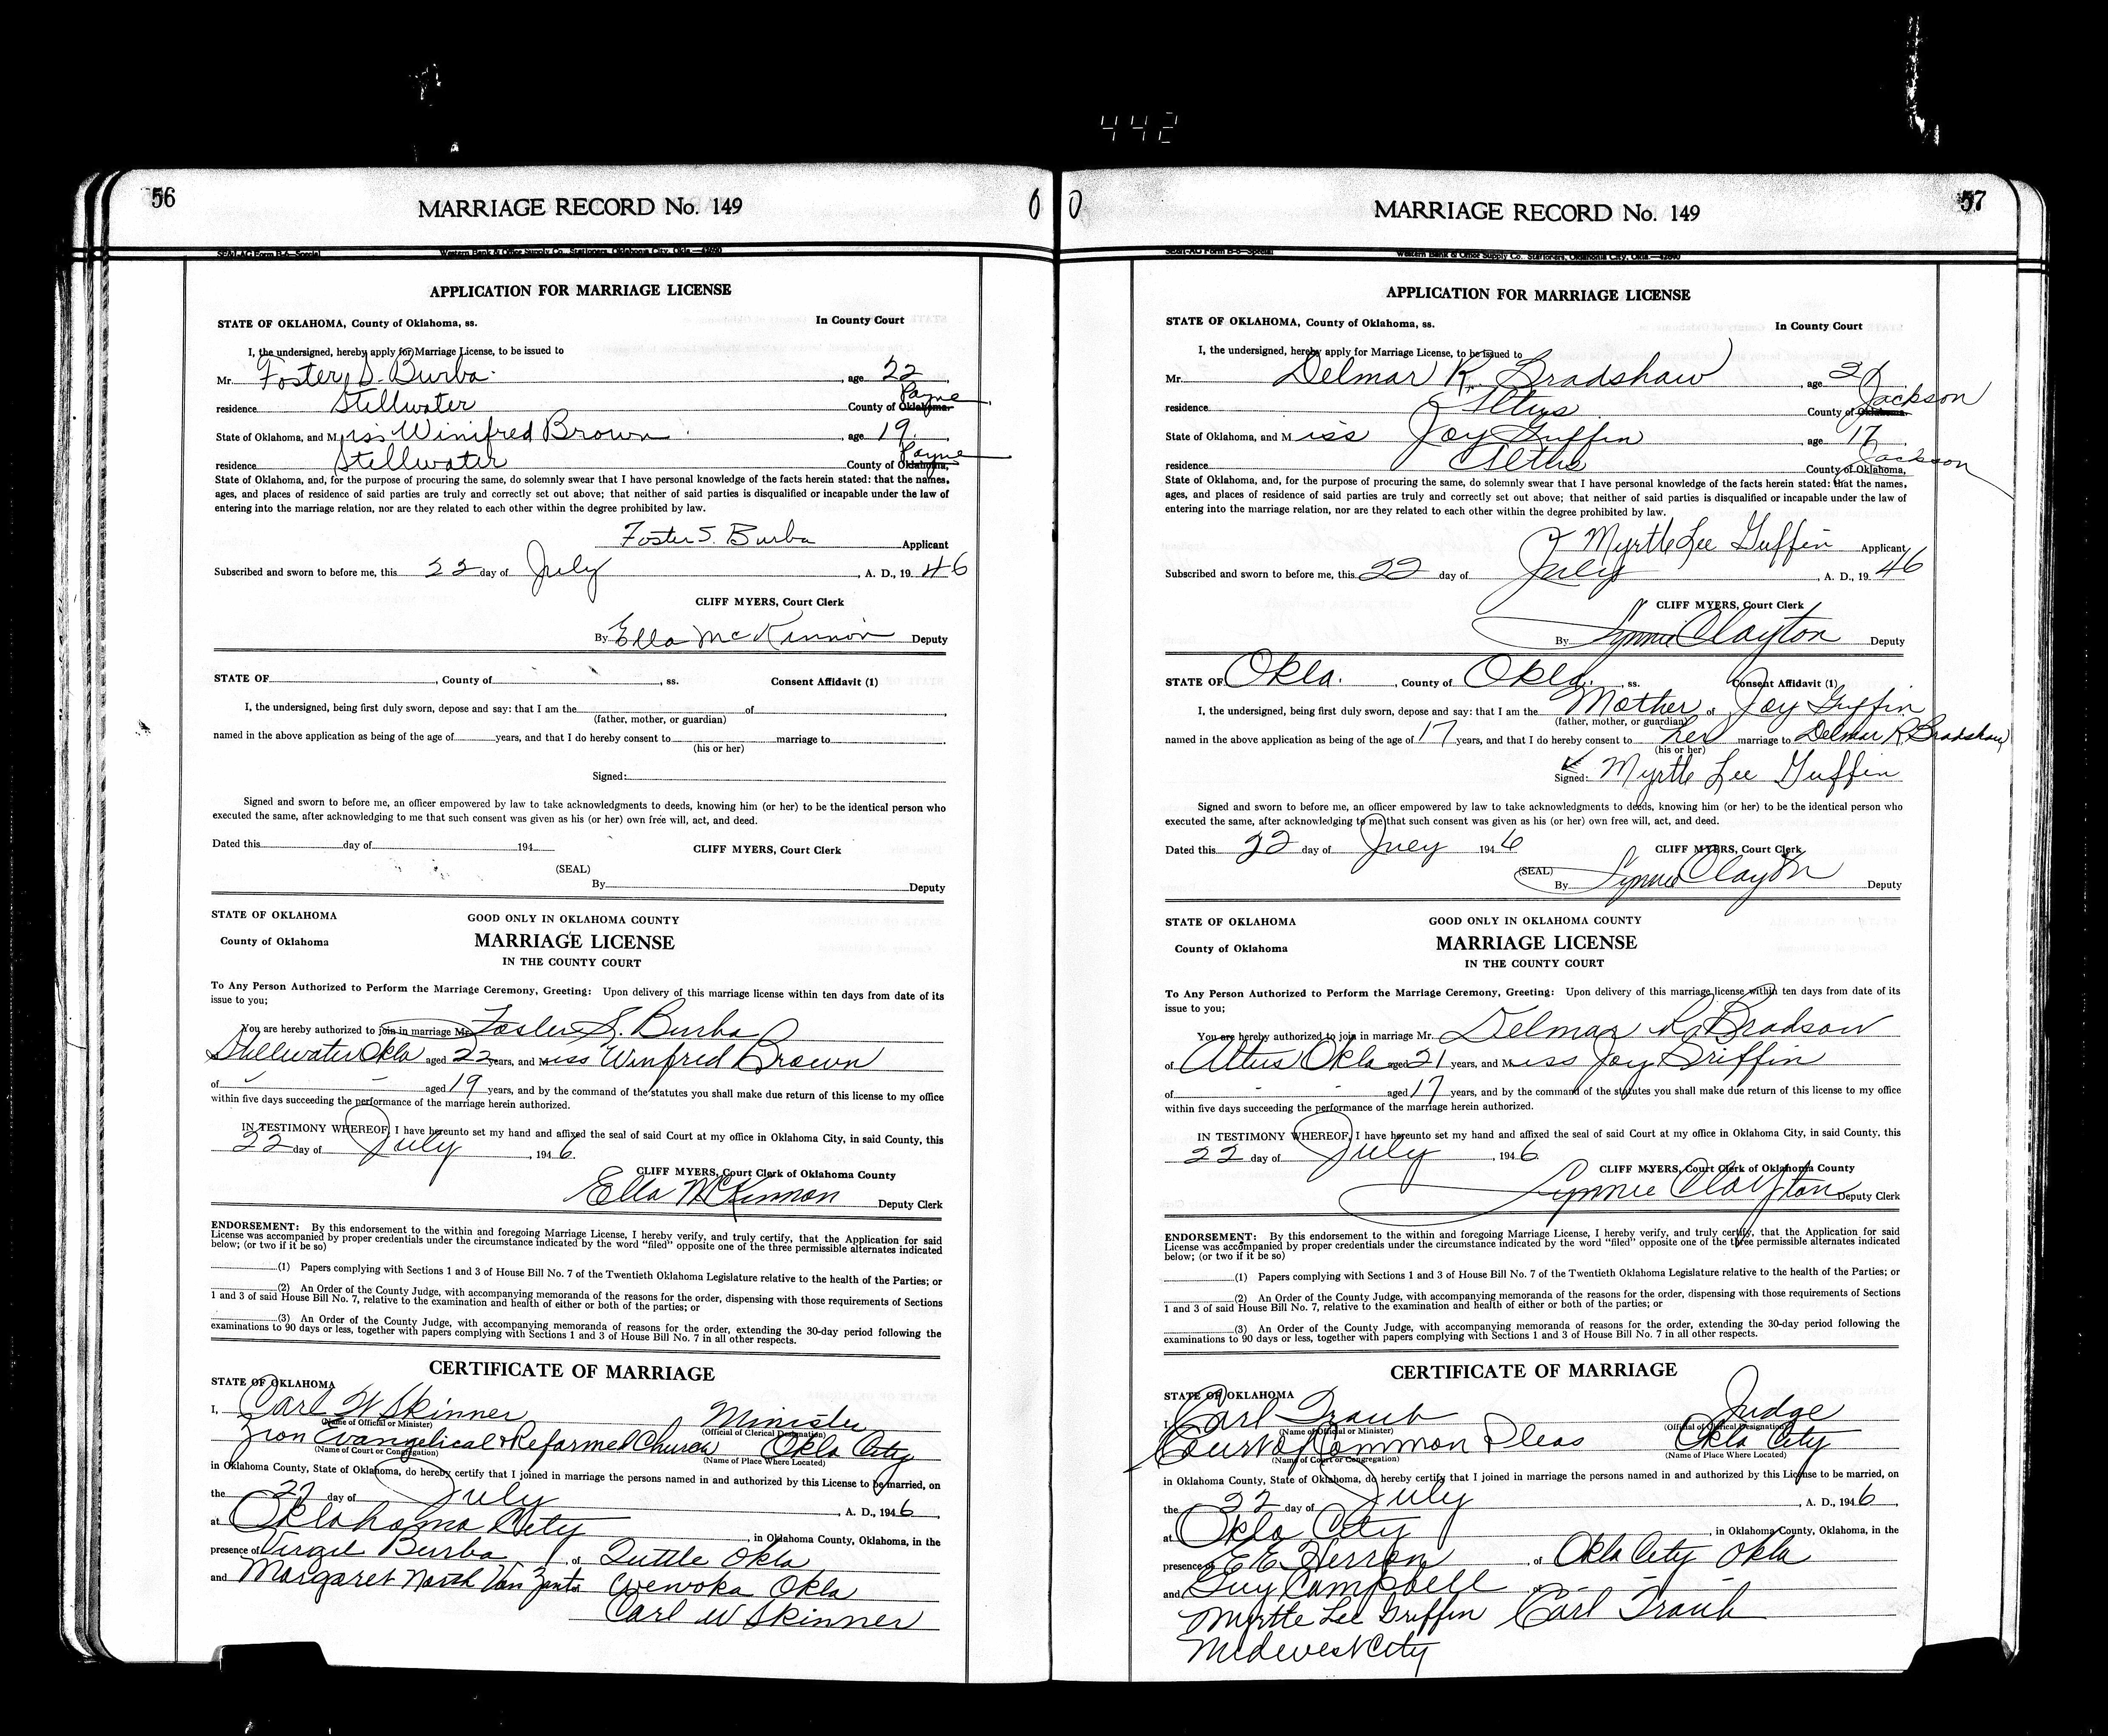 442
56
MARRIAGE RECORD No. 149
0
SE&I-AG Form B-6—Special Western Bank & Office Supply Co. Stationers, Oklahoma City, Okla.—42690
APPLICATION FOR MARRIAGE LICENSE
STATE OF OKLAHOMA, County of Oklahoma, ss. In County Court
I, the undersigned, hereby apply for Marriage License, to be issued to
Mr. Foster S. Burba , age 22 ,
residence Stillwater County of Oklahoma. Payne
State of Oklahoma, and Miss Winifred Brown , age 19
residence Stillwater County of Oklahoma, Payne
State of Oklahoma, and, for the purpose of procuring the same, do solemnly swear that I have personal knowledge of the facts herein stated: that the names,
ages, and places of residence of said parties are truly and correctly set out above; that neither of said parties is disqualified or incapable under the law of
entering into the marriage relation, nor are they related to each other within the degree prohibited by law.
Foster S. Burba Applicant
Subscribed and sworn to before me, this 22 day of July , A. D., 19 46
CLIFF MYERS, Court Clerk
By Ella McKinnon Deputy
STATE OF , County of , ss. Consent Affidavit (1)
I, the undersigned, being first duly sworn, depose and say: that I am the of ,
(father, mother, or guardian)
named in the above application as being of the age of years, and that I do hereby consent to marriage to .
(his or her)
Signed:
Signed and sworn to before me, an officer empowered by law to take acknowledgments to deeds, knowing him (or her) to be the identical person who
executed the same, after acknowledging to me that such consent was given as his (or her) own free will, act, and deed.
Dated this day of 194 CLIFF MYERS, Court Clerk
(SEAL)
By Deputy
STATE OF OKLAHOMA GOOD ONLY IN OKLAHOMA COUNTY
County of Oklahoma MARRIAGE LICENSE
IN THE COUNTY COURT
To Any Person Authorized to Perform the Marriage Ceremony, Greeting: Upon delivery of this marriage license within ten days from date of its
issue to you;
You are hereby authorized to join in marriage Mr. Foster S. Burba
Stillwater Okla aged 22 years, and Miss Winfred Brown
of aged 19 years, and by the command of the statutes you shall make due return of this license to my office
within five days succeeding the performance of the marriage herein authorized.
IN TESTIMONY WHEREOF, I have hereunto set my hand and affixed the seal of said Court at my office in Oklahoma City, in said County, this
22 day of July , 194 6.
CLIFF MYERS, Court Clerk of Oklahoma County
Ella McKinnon Deputy Clerk
ENDORSEMENT: By this endorsement to the within and foregoing Marriage License, I hereby verify, and truly certify, that the Application for said
License was accompanied by proper credentials under the circumstance indicated by the word "filed" opposite one of the three permissible alternates indicated
below; (or two if it be so)
(1) Papers complying with Sections 1 and 3 of House Bill No. 7 of the Twentieth Oklahoma Legislature relative to the health of the Parties; or
(2) An Order of the County Judge, with accompanying memoranda of the reasons for the order, dispensing with those requirements of Sections
1 and 3 of said House Bill No. 7, relative to the examination and health of either or both of the parties; or
(3) An Order of the County Judge, with accompanying memoranda of reasons for the order, extending the 30-day period following the
examinations to 90 days or less, together with papers complying with Sections 1 and 3 of House Bill No. 7 in all other respects.
CERTIFICATE OF MARRIAGE
STATE OF OKLAHOMA
I, Carl W Skinner Minister
(Name of Official or Minister) (Official of Clerical Designation)
Zion Evangelical & Reformed Church Okla City
(Name of Court or Congregation) (Name of Place Where Located)
in Oklahoma County, State of Oklahoma, do hereby certify that I joined in marriage the persons named in and authorized by this License to be married, on
the 22 day of July , A. D., 194 6 ,
at Oklahoma City , in Oklahoma County, Oklahoma, in the
presence of Virgil Burba of Tuttle Okla
and Margaret North Van Zante Wewoka Okla
Carl W Skinner
57
MARRIAGE RECORD No. 149
0
SE&I-AG Form B-6—Special Western Bank & Office Supply Co. Stationers, Oklahoma City, Okla.—42690
APPLICATION FOR MARRIAGE LICENSE
STATE OF OKLAHOMA, County of Oklahoma, ss. In County Court
I, the undersigned, hereby apply for Marriage License, to be issued to
Mr. Delmar R. Bradshaw , age 21
residence Altus County of Oklahoma. Jackson
State of Oklahoma, and Miss Joy Guffin , age 17
residence Altus County of Oklahoma, Jackson
State of Oklahoma, and, for the purpose of procuring the same, do solemnly swear that I have personal knowledge of the facts herein stated: that the names,
ages, and places of residence of said parties are truly and correctly set out above; that neither of said parties is disqualified or incapable under the law of
entering into the marriage relation, nor are they related to each other within the degree prohibited by law.
Myrtle Lee Guffin Applicant
Subscribed and sworn to before me, this 22 day of July , A. D., 19 46
CLIFF MYERS, Court Clerk
By Lynnie Clayton Deputy
STATE OF Okla. , County of Okla. , ss. Consent Affidavit (1)
I, the undersigned, being first duly sworn, depose and say: that I am the Mother of Joy Guffin
(father, mother, or guardian)
named in the above application as being of the age of 17 years, and that I do hereby consent to her marriage to Delmar R Bradshaw
(his or her)
Signed: Myrtle Lee Guffin
Signed and sworn to before me, an officer empowered by law to take acknowledgments to deeds, knowing him (or her) to be the identical person who
executed the same, after acknowledging to me that such consent was given as his (or her) own free will, act, and deed.
Dated this 22 day of July 194 6 CLIFF MYERS, Court Clerk
(SEAL)
By Lynnie Clayton Deputy
STATE OF OKLAHOMA GOOD ONLY IN OKLAHOMA COUNTY
County of Oklahoma MARRIAGE LICENSE
IN THE COUNTY COURT
To Any Person Authorized to Perform the Marriage Ceremony, Greeting: Upon delivery of this marriage license within ten days from date of its
issue to you;
You are hereby authorized to join in marriage Mr. Delmar R. Bradsow
of Altus Okla aged 21 years, and Miss Joy Griffin
of aged 17 years, and by the command of the statutes you shall make due return of this license to my office
within five days succeeding the performance of the marriage herein authorized.
IN TESTIMONY WHEREOF, I have hereunto set my hand and affixed the seal of said Court at my office in Oklahoma City, in said County, this
22 day of July , 194 6.
CLIFF MYERS, Court Clerk of Oklahoma County
Lynnie Clayton Deputy Clerk
ENDORSEMENT: By this endorsement to the within and foregoing Marriage License, I hereby verify, and truly certify, that the Application for said
License was accompanied by proper credentials under the circumstance indicated by the word "filed" opposite one of the three permissible alternates indicated
below; (or two if it be so)
(1) Papers complying with Sections 1 and 3 of House Bill No. 7 of the Twentieth Oklahoma Legislature relative to the health of the Parties; or
(2) An Order of the County Judge, with accompanying memoranda of the reasons for the order, dispensing with those requirements of Sections
1 and 3 of said House Bill No. 7, relative to the examination and health of either or both of the parties; or
(3) An Order of the County Judge, with accompanying memoranda of reasons for the order, extending the 30-day period following the
examinations to 90 days or less, together with papers complying with Sections 1 and 3 of House Bill No. 7 in all other respects.
CERTIFICATE OF MARRIAGE
STATE OF OKLAHOMA
I, Carl Traub Judge
(Name of Official or Minister) (Official of Clerical Designation)
Court of Common Pleas Okla City
(Name of Court or Congregation) (Name of Place Where Located)
in Oklahoma County, State of Oklahoma, do hereby certify that I joined in marriage the persons named in and authorized by this License to be married, on
the 22 day of July , A. D., 194 6 ,
at Okla City , in Oklahoma County, Oklahoma, in the
presence of E E Herron , of Okla City Okla
and Guy Campbell
Myrtle Lee Griffin Carl Traub
Midwest City